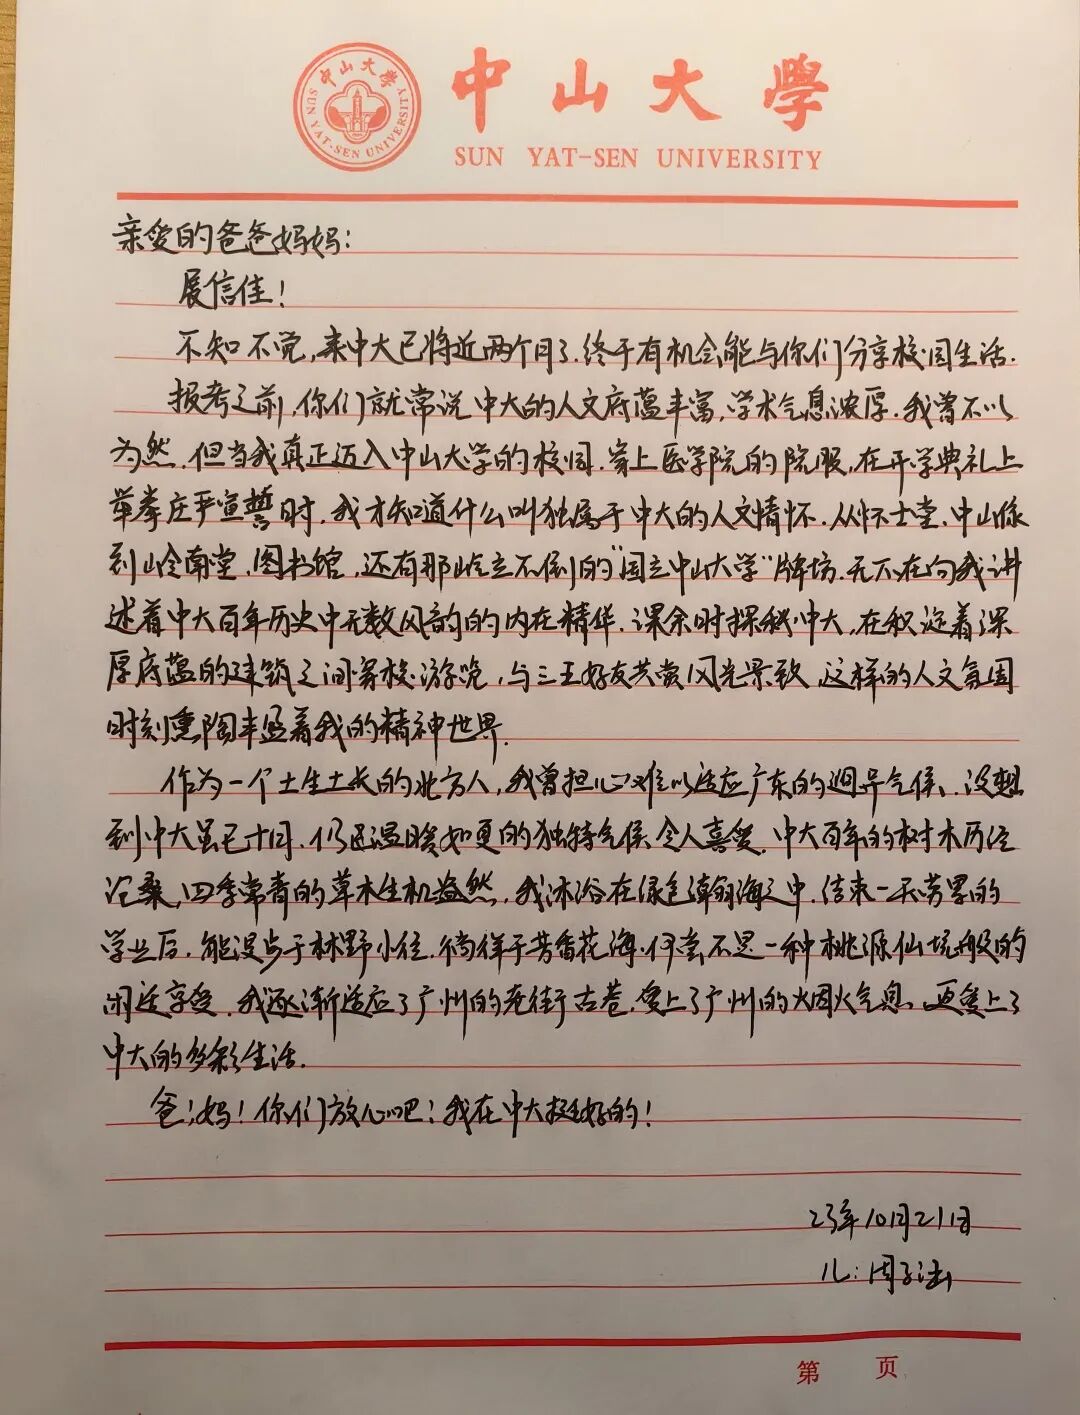 中山大学
SUN YAT-SEN UNIVERSITY
中山大學
SUN YAT-SEN UNIVERSITY
亲爱的爸爸妈妈：
展信佳！
不知不觉，来中大已将近两个月了.终于有机会能与你们分享校园生活.
报考之前，你们就常说中大的人文底蕴丰富，学术气息浓厚.我曾不以
为然.但当我真正迈入中山大学的校园.穿上医学院的院服，在开学典礼上
举拳庄严宣誓时.我才知道什么叫独属于中大的人文情怀.从怀士堂.中山像
到岭南堂.图书馆，还有那屹立不倒的“国立中山大学”牌坊.无不在向我讲
述着中大百年历史中无数风韵的内在精华.课余时探秘中大，在积淀着深
厚底蕴的建筑之间穿梭游览，与三五好友共赏风光景致.这样的人文氛围
时刻熏陶丰盈着我的精神世界.
作为一个土生土长的北方人，我曾担心难以适应广东的迥异气候，没想
到中大虽已十月.仍是温暖如夏的独特气候令人喜爱.中大百年的树木历经
沧桑，四季常青的草木生机盎然.我沐浴在绿色瀚海之中.结束一天劳累的
学业后.能漫步于林野小径.徜徉于芳香花海.何尝不是一种桃源仙境般的
闲适享受.我逐渐适应了广州的老街古巷.爱上了广州的火烟火气息.更爱上了
中大的多彩生活.
爸！妈！你们放心吧！我在中大挺好的！
23年10月21日
儿：周子
第 页